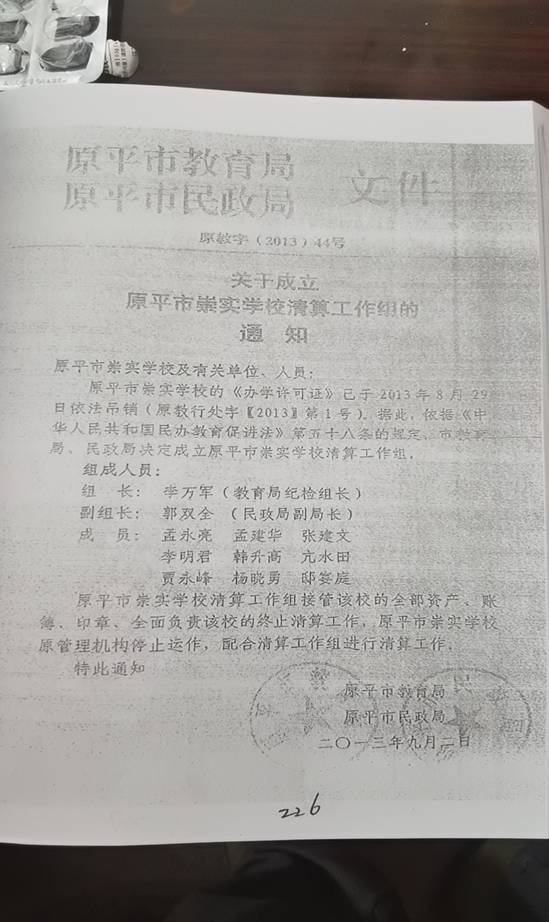 原平市教育局
原平市民政局
文件
原教字（2013）44号
关于成立
原平市崇实学校清算工作组的
通知
原平市崇实学校及有关单位、人员：
原平市崇实学校的《办学许可证》已于2013年8月29
日依法吊销（原教行处字【2013】第1号）。据此，依据《中
华人民共和国民办教育促进法》第五十八条的规定，市教育
局、民政局决定成立原平市崇实学校清算工作组。
组成人员：
组 长： 李万军（教育局纪检组长）
副组长： 郭双全 （民政局副局长）
成 员： 孟永亮 孟建华 张建文
李明君 韩升高 亢水田
贾永峰 杨晓勇 邸宴庭
原平市崇实学校清算工作组接管该校的全部资产、账
簿、印章、全面负责该校的终止清算工作，原平市崇实学校
原管理机构停止运作，配合清算工作组进行清算工作。
特此通知
原平市教育局
原平市民政局
二〇一三年九月二日
226